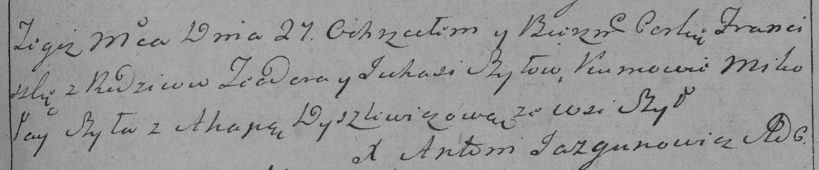 Tegoż Mca Dnia 27. Ochrzciłem y Bierzm Corkę Franci
szkę z Rodzicow Teodora y Juhasi Ryłow, Kumowie Miko
łay Ryła z Ahapą Dyszlewiczową ze wsi Rył
X Antoni Jazgunowicz